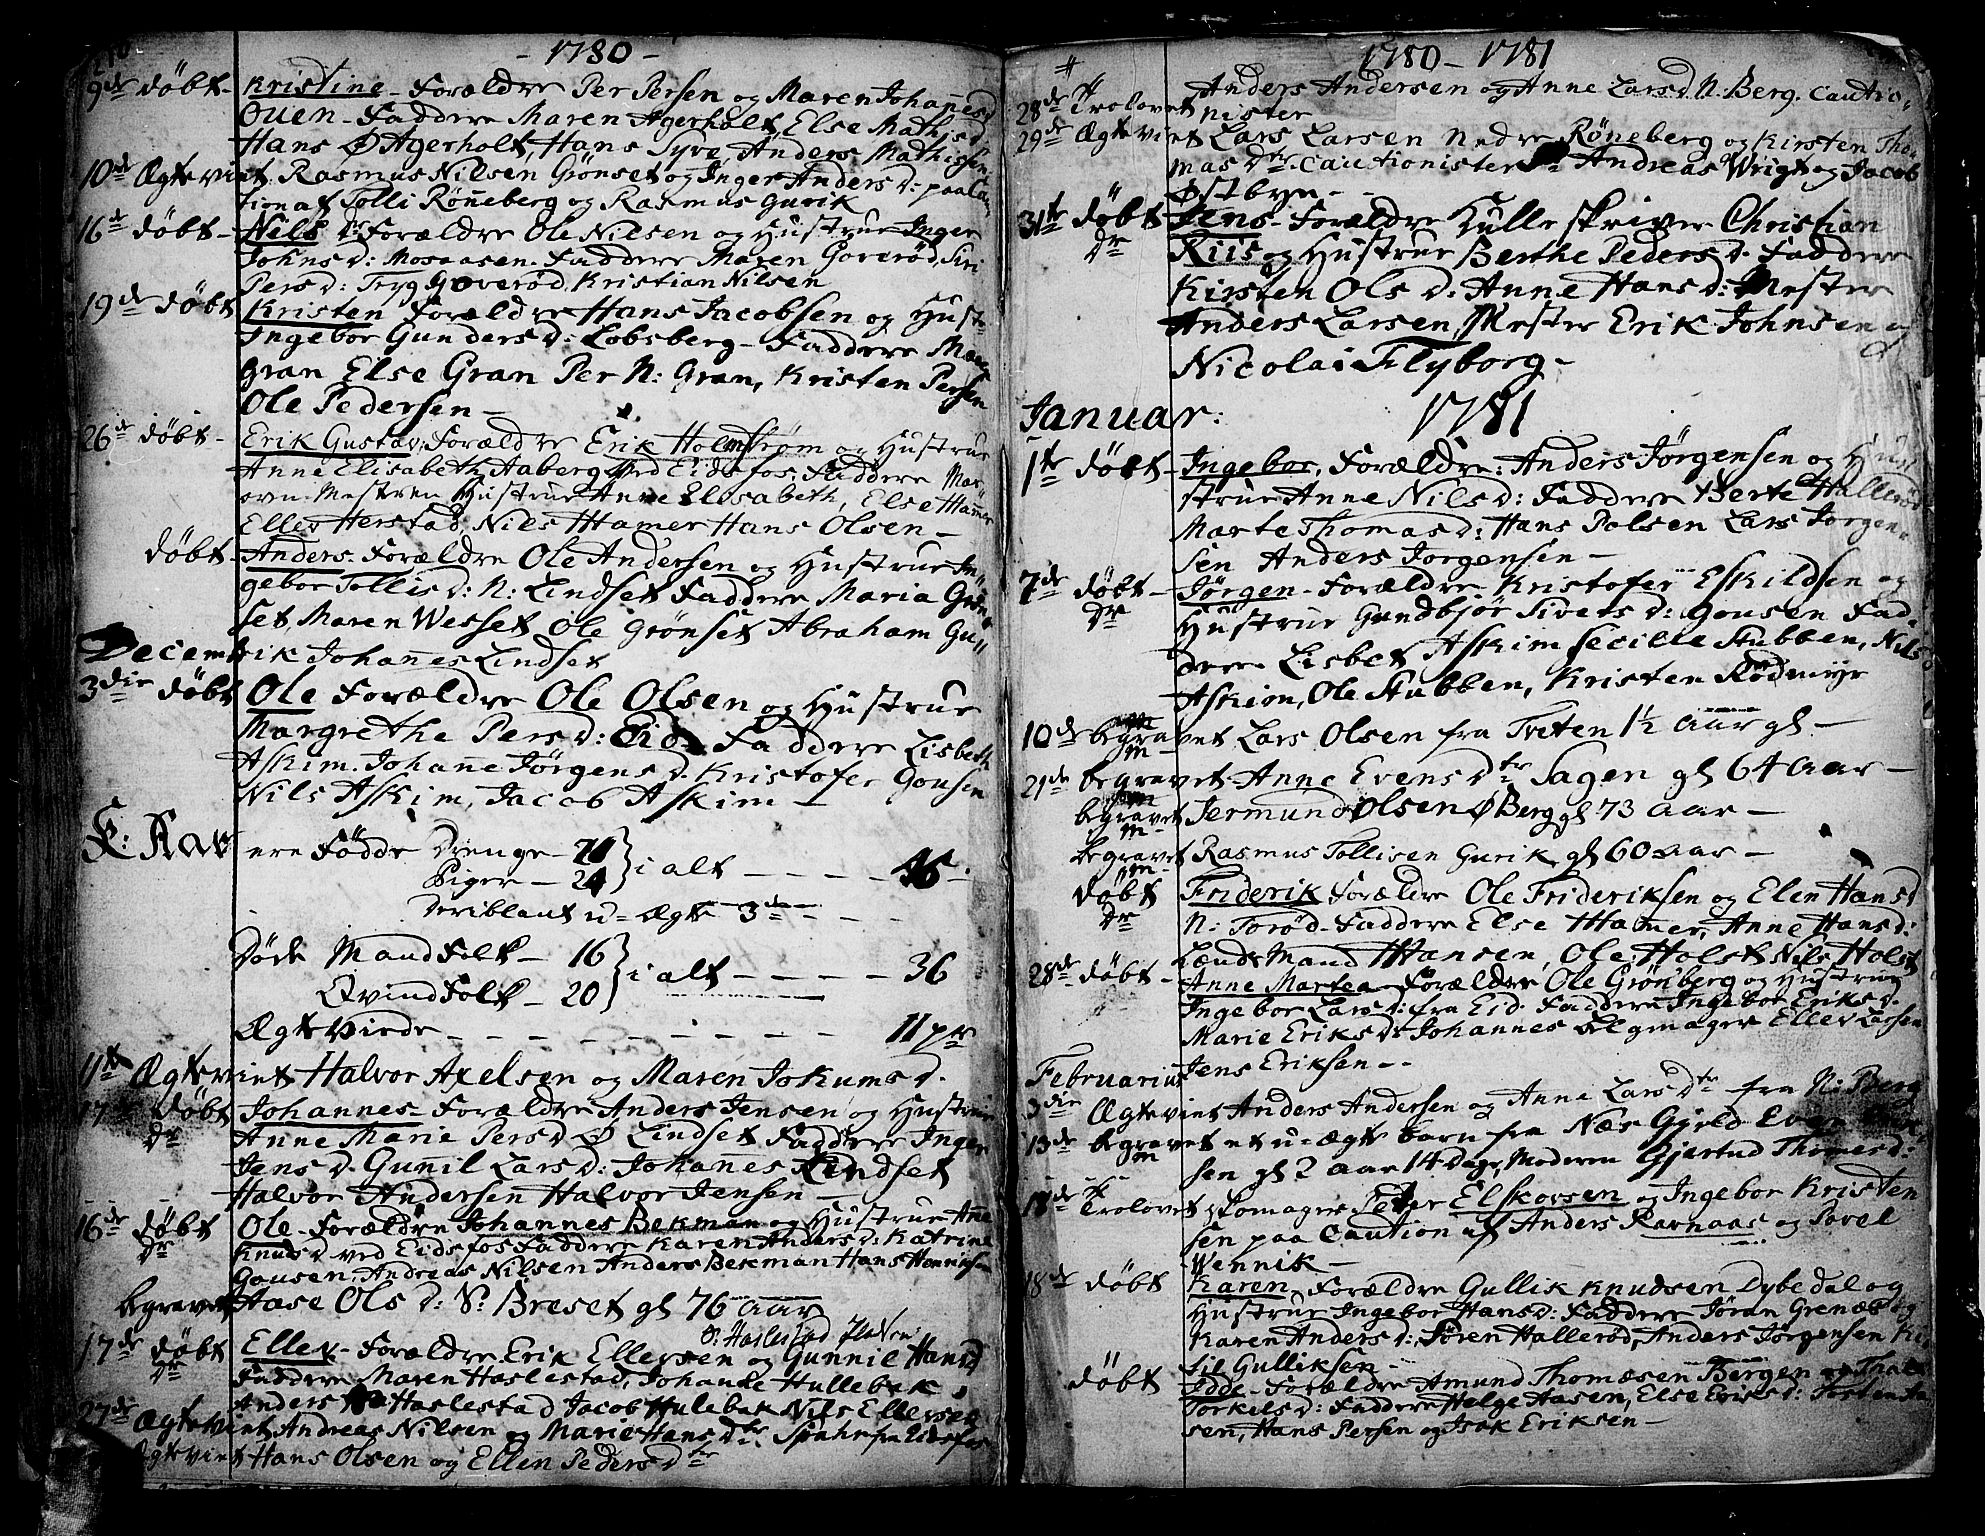 210
- 1780 -
9de døbt - Kristine - Forældre Per Persen og Maren Johannesd
Ouen - Faddere Maren Agerholt, Else Mathisd
Hans Ø Agerholt, Hans Syve Anders Mathissen
10de Ægteviet Rasmus Nilsen Grönset og Inger Andersd: paa Cau
tion af Tolli Röneberg og Rasmus Gurik
16de døbt - Nils Forældre Ole Nilsen og Hustrue Inger
Johnsd: Mosaasen - Faddere Maren Goverød, Siri
Persd: Tryg Goverød, Kristian Nilsen
19de døbt Kristen Forældre Hans Jacobsen og Hust:
Ingebor Gundersd: Løbsberg - Faddere Maren
Gran Else Gran Per N: Gran, Kristen Persen
Ole Pedersen -
26de døbt - Erik Gustav: Forældre Erik Holmstrøm og Hustrue
Anne Elisabeth Aaberg ved Eidsfos: Faddere Mas-
ovn Mestren Hustrue Anne Elisabeth, Else Hamer
Ellev Herstad, Nils Hamer Hans Olsen -
døbt - Anders - Forældre Ole Andersen og Hustrue In-
gebor Tollisd: N: Lindset Faddere Maria Grön
set, Maren Wesset Ole Grönset Abraham Gu-
Decemb rik Johannes Lindset
3die døbt Ole Forældre Ole Olsen og Hustrue
Margrethe Persd: Eid - Faddere Lisbeth
Askim. Johanne Jörgensd. Kristofer Gonsen
Nils Askim, Jacob Askim -
K: Aar ere Fødde Drenge - 21 } i alt - - - - 45 -
Piger - 24
Deriblant u-Ægte 3de - - -
Døde Mandfolk - 16 } i alt - - - - 36
Qvindfolk - 20
Ægteviede - - - - - - 11 pr
11te Ægteviet Halvor Axelsen og Maren Jokumsd.
17de døbt Johannes - Forældre Anders Jensen og Hustrue
Dr Anne Marie Persd Ø Lindset Faddere Inger
Jensd. Gunnil Larsd: Johannes Lindset
Halvor Andersen Halvor Jensen -
16de døbt Ole - Forældre Johannes Bekman og Hustrue Anne
Dr Knudsd ved Eidsfos Faddere Karen Andersd: Katrine
Gousen, Andreas Nilsen Anders Bekman Hans Henriksen
begravet Aase Olsd: S: Breset gl 76 aar
S: Haslestad
17de døbt Ellev - Forældre Erik Ellevsen og Gunnil Hansd
Dr Faddere Maren Haslestad, Johanne Hullebak
Anders Haslestad Jacob Hulebak Nils Ellevsen
27de Ægteviet Andreas Nilsen og Marie Hansdtr. Spahr fra Eidsfos
Ægteviet Hans Olsen og Ellen Pedersdtr
1780 - 1781
28de Trolovet Anders Andersen og Anne Larsd N. Berg. Cautio-
nister
29de Ægteviet Lars Larsen Nedre Röneberg og Kirsten Tho-
masdtr. Cautionister Andreas Wrigt og Jacob
Østbyn -
31te døbt Jens - Forældre Hulleskriver Christian
Dr Riis og Hustrue Berthe Pedersd. Faddere
Kirsten Olsd: Anne Hansd: Mester
Anders Larsen, Mester Erik Johnsen og
Nicolai Flyborg -
Januar: 1781
1te døbt - Ingebor, Forældre: Anders Jørgensen og Hu
strue Anne Nilsd: Faddere Berte Hallerød
Marte Thomasd: Hans Polsen Lars Jorgen-
sen Anders Jorgensen -
7de døbt - Jörgen - Forældre Kristofer Eskildsen og
Dr Hustrue Gundbjør Siversd: Gonsen Fad-
dere Lisbet Askim Secille Stubben, Nils
Askim, Ole Stubben, Kristen Rødmyr
10de begravet Lars Olsen fra Treten 1½ aar gl -
m
21de begravet - Anne Evensdtr Sagen gl 64 aar -
begravet Jermund Olsen Ø Berg gl 73 aar -
m
begravet Rasmus Tollisen Gurik gl 60 aar -
m
døbt Friderik Forældre Ole Frideriksen og Elen Hansd
Dr N: Torød - Faddere Else Hamer, Anne Hansd:
Lændsmand Hansen, Ole Holst Nils Holst
28de døbt - Anne Martea - Forældre Ole Grønberg og Hustrue
Ingebor Larsd: fra Eid. Faddere Ingebor Eriksd.
Marie Eriksd: Johannes Belgmager Ellev Larsen
Jens Eriksen - -
Februarius
3die Ægteviet Anders Andersen og Anne Larsdtr fra N: Berg
13de begravet et u-ægte barn fra Næs Gjeld Even
m sen gl 2 aar 14 Dage, Moderen Gjertud Thomesd:
18de Trolovet Skomager Peter Elskorsen og Ingebor Kristen
sen paa Caution af Anders Ravnaas og Povel
Wennik -
18de døbt Karen Forældre Gullik Knudsen Dybedal og
Hustrue Ingebor Hansd: Faddere Jøran Grenes og
Karen Andersd: Søren Hallerød, Anders Jørgensen Ki-
lil Gulliksen -
døbt Idde - Forældre Amund Thomæsen Bergen og
Torkilsd: Faddere Helge Aasen, Else Eriksd: Torsten La
sen, Hans Persen og Isak Eriksen -